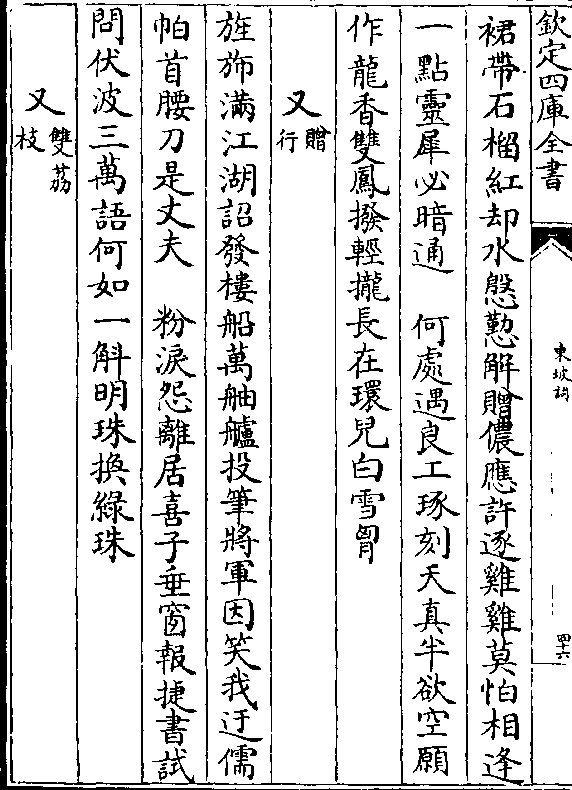 欽定四庫全書
東坡詞
四十六
裙帶石榴紅却水慇懃解贈儂應許逐雞雞莫怕相逢
一點靈犀必暗通　何處遇良工琢刻天真半欲空願
作龍香雙鳳撥輕攏長在環兒白雪胷
又贈行
旌斾滿江湖詔發樓船萬舳艫投筆將軍因笑我迂儒
帕首腰刀是丈夫　粉淚怨離居喜子垂窗報捷書試
問伏波三萬語何如一斛明珠換綠珠
又雙荔枝